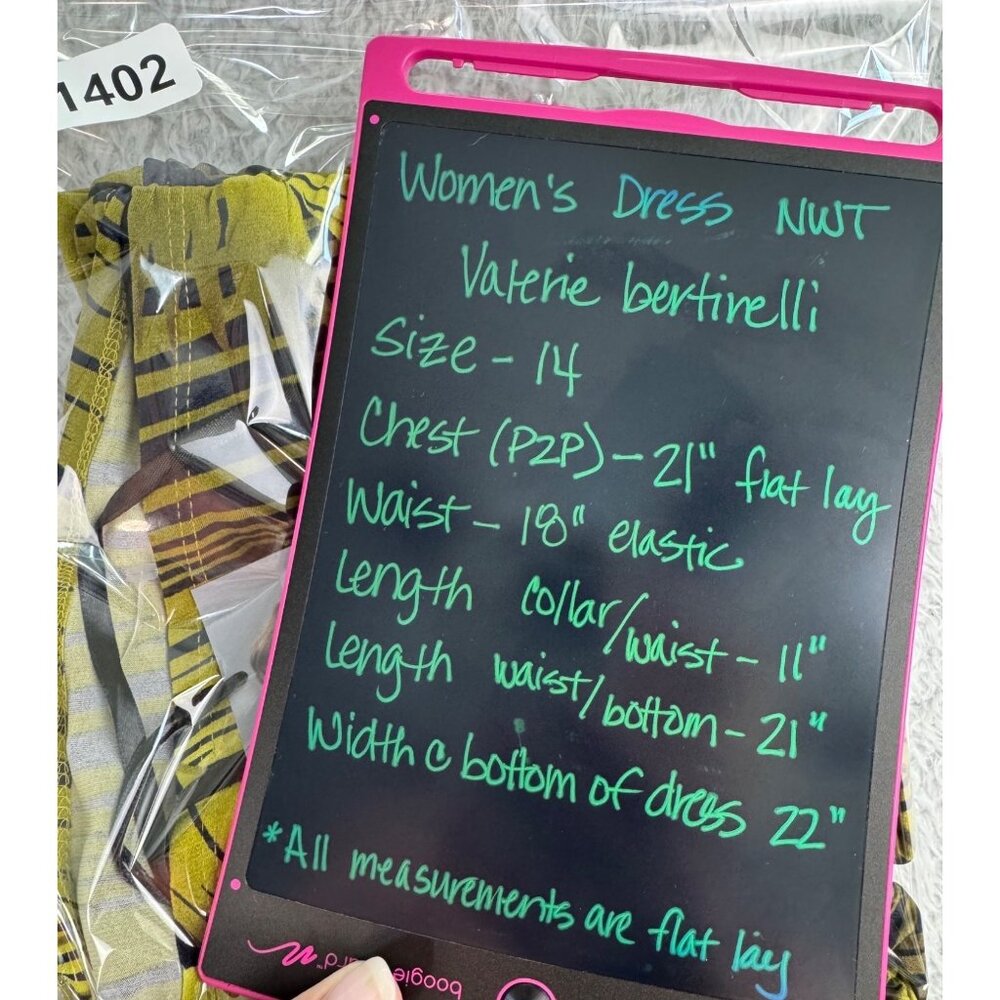 1402
Women's Dress NWT
Valerie bertinelli
Size - 14
Chest (P2P) - 21" flat lay
Waist - 18" elastic
Length collar/waist - 11"
Length waist/bottom - 21"
Width @ bottom of dress 22"
*All measurements are flat lay
boogie